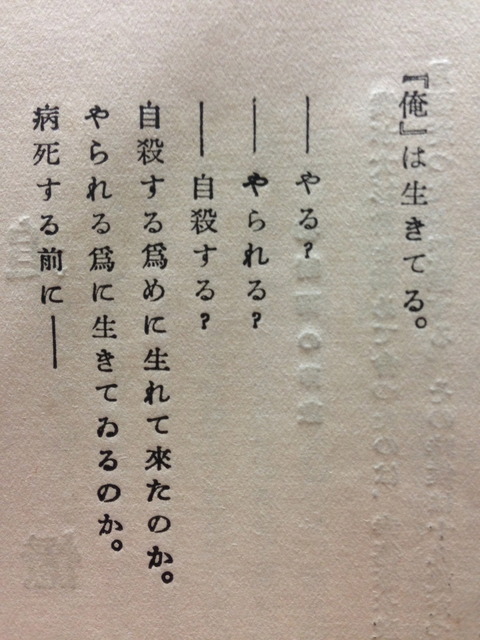 『俺』は生きてる。
――やる?
――やられる?
――自殺する?
自殺する爲めに生れて來たのか。
やられる爲に生きてゐるのか。
病死する前に――